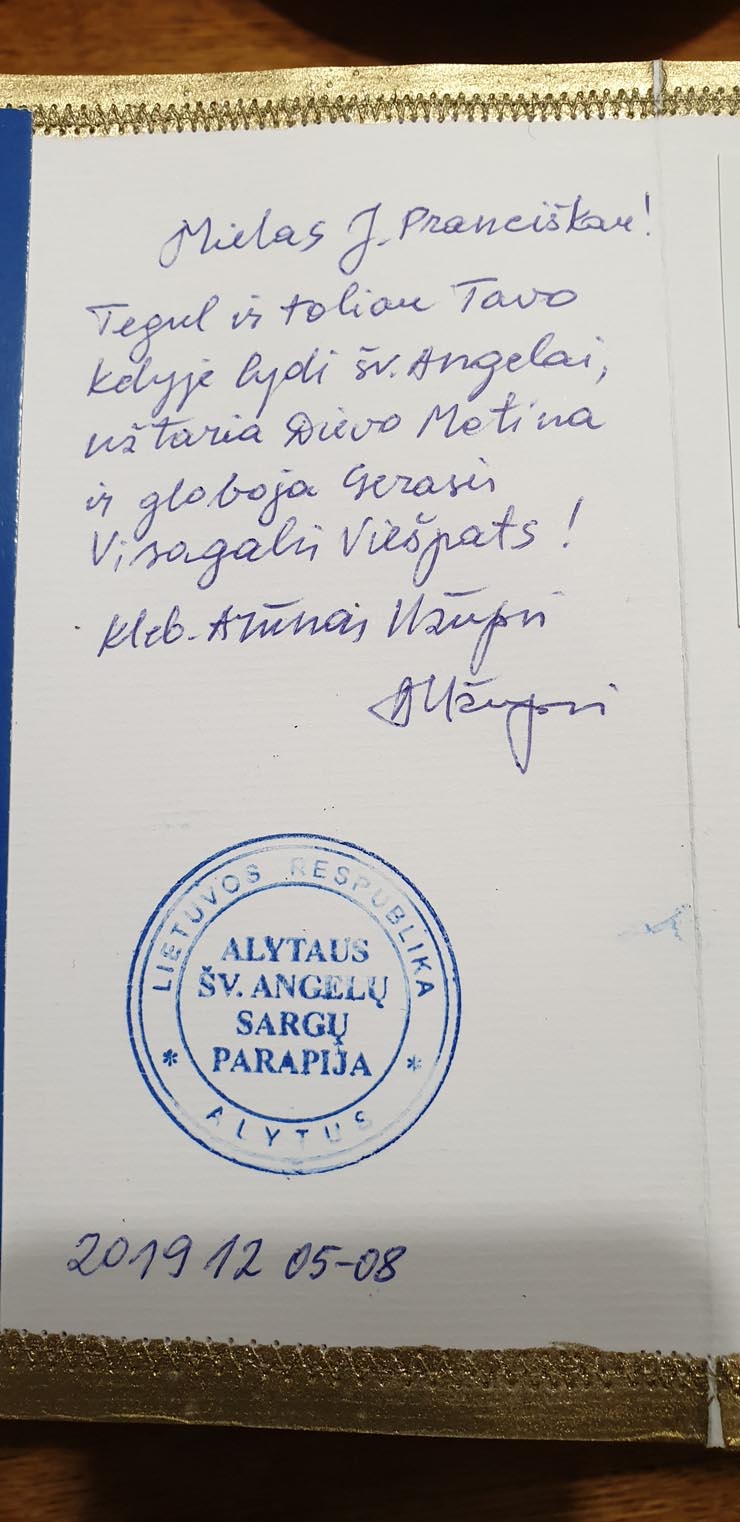 Mielas J. Pranciškau!
Tegul ir toliau Tavo
kelyje lydi šv. Angelai,
užtaria Dievo Motina
ir globoja Gerasis
Visagalis Viešpats!
Kleb. Arūnas Užupis
AUžupis
LIETUVOS RESPUBLIKA
ALYTAUS
ŠV. ANGELŲ
SARGŲ
PARAPIJA
* ALYTUS *
2019 12 05-08